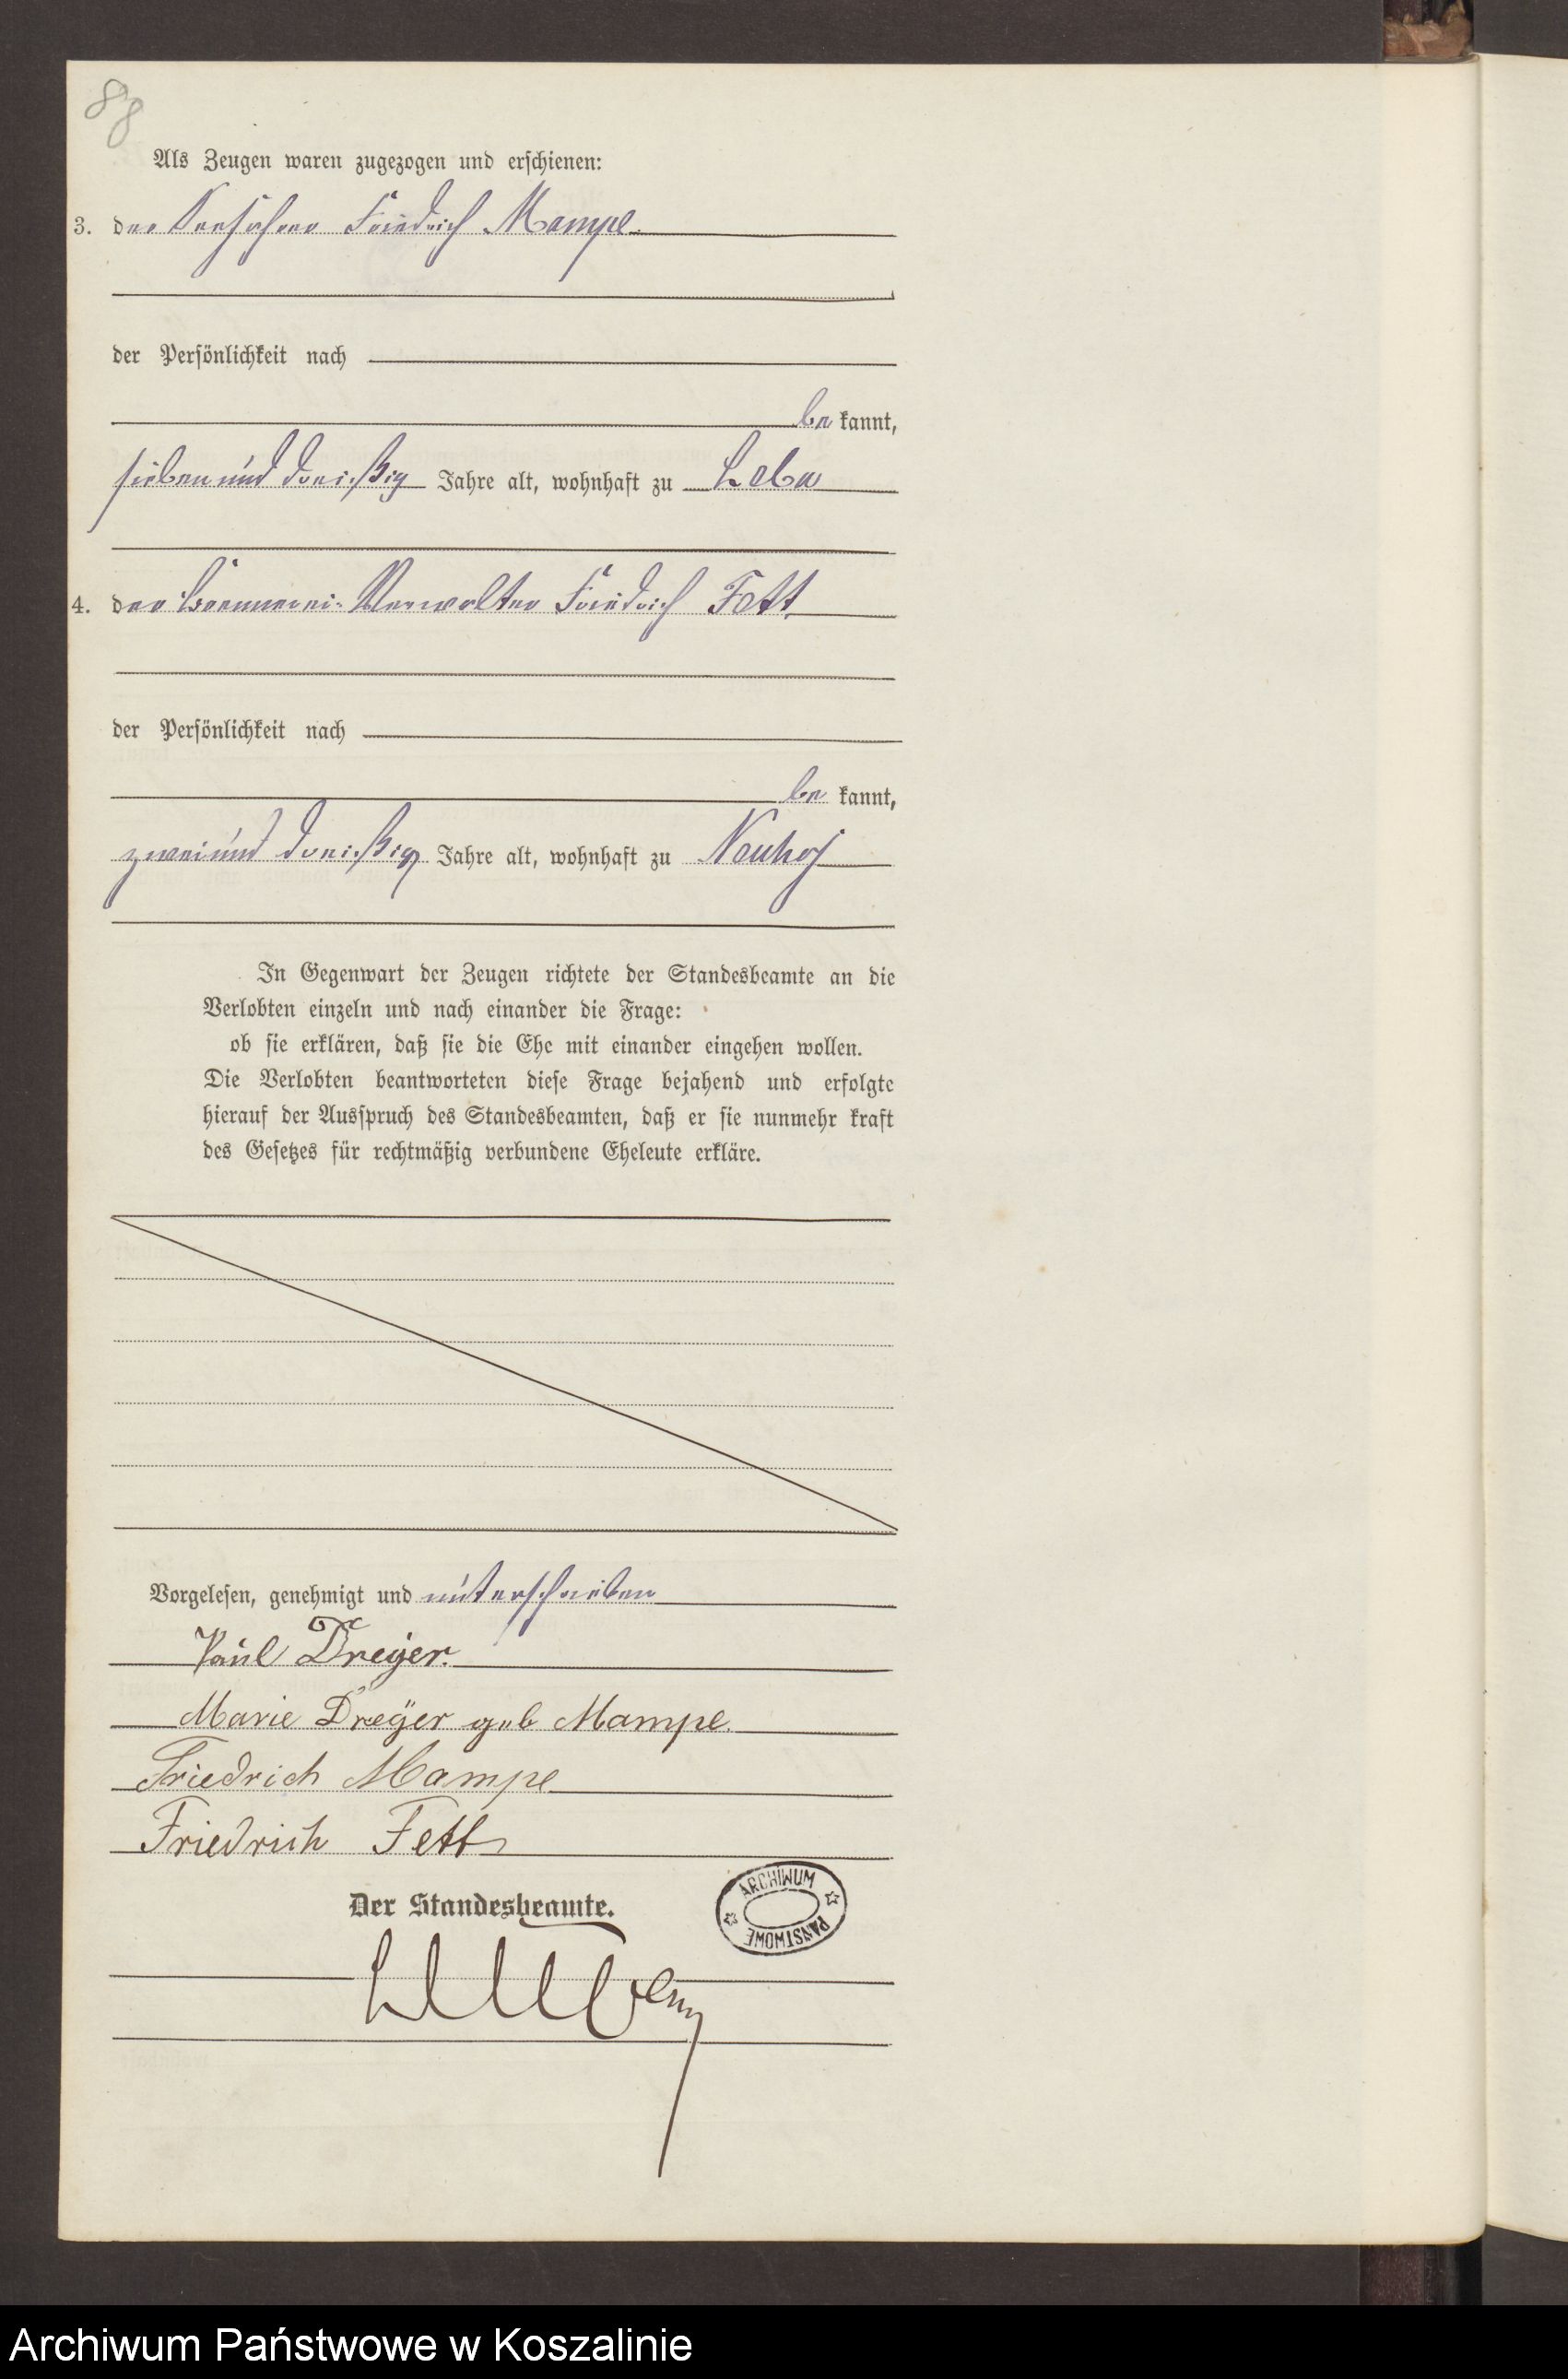 88
Als Zeugen waren zugezogen und erschienen:
3. der Seefahrer Friedrich Mampe
der Persönlichkeit nach
be kannt,
siebenunddreißig Jahre alt, wohnhaft zu Leba
4. der Brennerei-Verwalter Friedrich Fett
der Persönlichkeit nach
be kannt,
zweiunddreißig Jahre alt, wohnhaft zu Neuhof
In Gegenwart der Zeugen richtete der Standesbeamte an die
Verlobten einzeln und nach einander die Frage:
ob sie erklären, daß sie die Ehe mit einander eingehen wollen.
Die Verlobten beantworteten diese Frage bejahend und erfolgte
hierauf der Ausspruch des Standesbeamten, daß er sie nunmehr kraft
des Gesetzes für rechtmäßig verbundene Eheleute erkläre.
Vorgelesen, genehmigt und unterschrieben
Paul Dreyer.
Marie Dreÿer geb Mampe.
Friedrich Mampe
Friedrich Fett
Der Standesbeamte.
ARCHIWUM PAŃSTWOWE
Archiwum Państwowe w Koszalinie